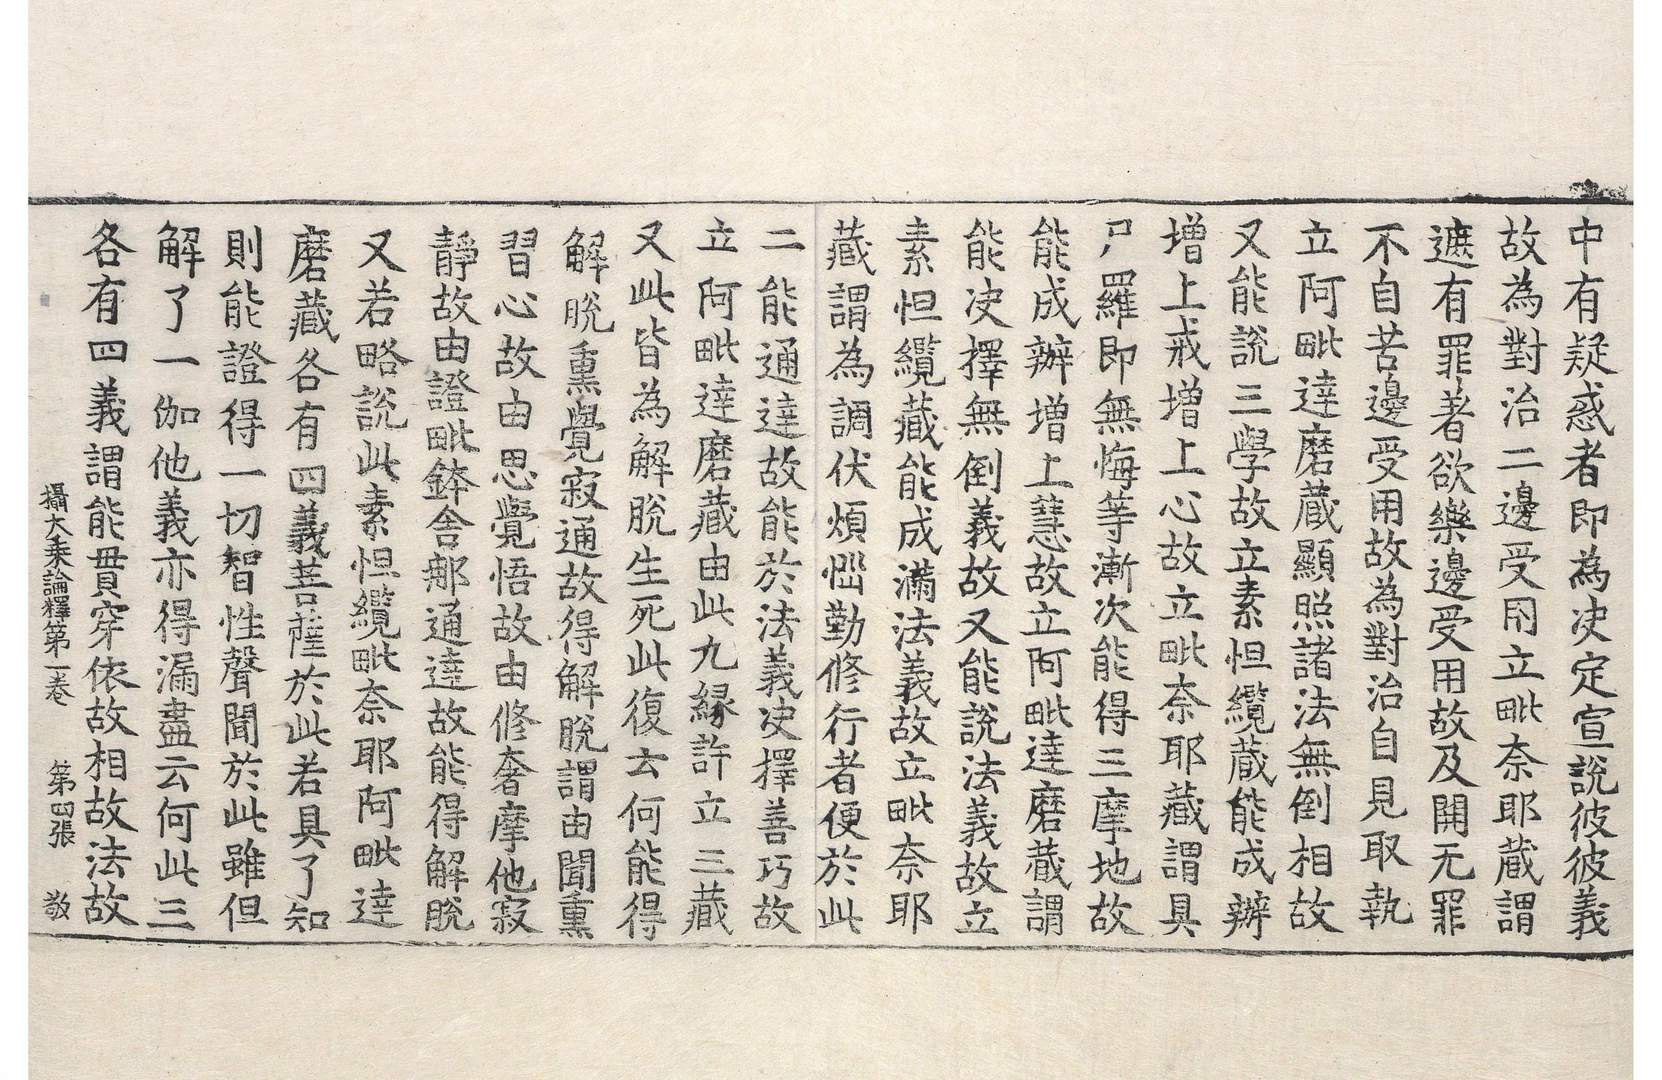 中有疑惑者即為决定宣說彼彼義
故為對治二邊受用立毗奈耶蔵謂
遮有罪著欲樂邊受用故及開无罪
不自苦邊受用故為對治自見取執
立阿毗達磨蔵顯照諸法無倒相故
又能說三學故立素怛纜蔵能成辦
增上戒增上心故立毗奈耶藏謂具
尸羅即無悔等漸次能得三摩地故
能成辦增上慧故立阿毗達磨蔵謂
能决擇無倒義故又能說法義故立
素怛纜藏能成滿法義故立毗奈耶
藏謂為調伏煩惱勤修行者便於此
二能通達故能於法義决擇善巧故
立阿毗達磨藏由此九緣許立三藏
又此皆為解脫生死此復云何能得
解脫熏覺寂通故得解脫謂由聞熏
習心故由思覺悟故由修奢摩他寂
靜故由證毗鉢舍那通達故能得解脫
又若略說此素怛纜毗奈耶阿毗達
磨藏各有四義菩薩於此若具了知
則能證得一切智性聲聞於此雖但
解了一伽他義亦得漏盡云何此三
各有四義謂能貫穿依故相故法故
攝大乘論釋第一卷　第四張　敬